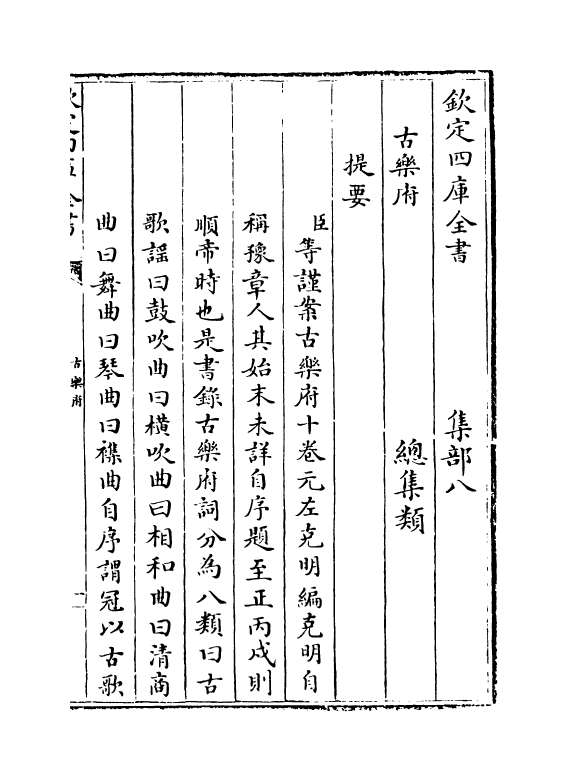 欽定四庫全書 集部八
古樂府 總集類
提要
臣等謹案古樂府十卷元左克明編克明自
稱豫章人其始末未詳自序題至正丙戌則
順帝時也是書錄古樂府詞分為八類曰古
歌謡曰鼓吹曲曰横吹曲曰相和曲曰清商
曲曰舞曲曰琴曲曰襍曲自序謂冠以古歌
古樂府